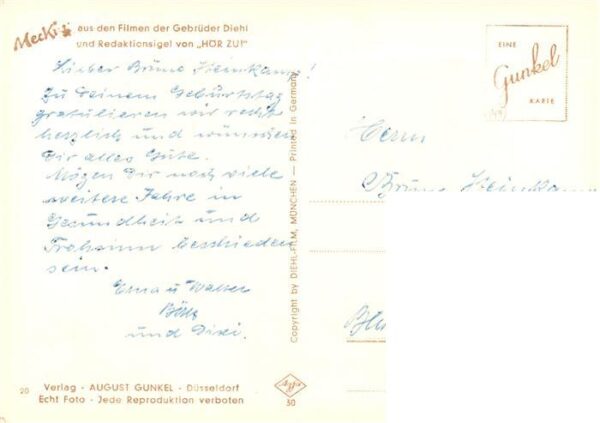 Mecki aus den Filmen der Gebrüder Diehl
und Redaktionsigel von „HÖR ZU!"
EINE
Gunkel
KARTE
Lieber Bruno Steinkamp!
Zu Deinem Geburtstag
gratulieren wir recht
herzlich und wünschen
Dir alles Gute.
Mögen Dir noch viele
weitere Jahre in
Gesundheit und
Frohsinn beschieden
sein.
Erna u Walter
und Dixi.
Copyright by DIEHL-FILM, MÜNCHEN — Printed in Germany
Herrn
Bruno
20
Verlag · AUGUST GUNKEL · Düsseldorf
Echt Foto · Jede Reproduktion verboten
Agfa
50